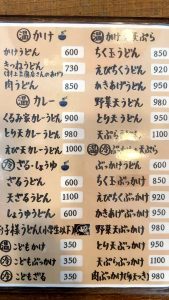 温 かけ
かけうどん 600
きつねうどん 750
肉うどん 850
温 カレー
くるみ家カレーうどん 900
とり天カレーうどん 980
えび天カレーうどん 1000
ざる・しょうゆ
ざるうどん 600
天ざるうどん 1100
しょうゆうどん 600
お子様うどん(小学生以下)
温 こどもかけ 350
冷 こどもぶっかけ 350
冷 こどもざる 350
温 かけ 天ぷら
ちく玉うどん 850
えびちくうどん 920
かきあげうどん 950
野菜天うどん 950
とり天うどん 950
温 冷 ぶっかけ
ぶっかけうどん 600
ちく玉ぶっかけ 850
えびちくぶっかけ 920
かきあげぶっかけ 950
野菜天ぶっかけ 950
とり天ぶっかけ 950
肉ぶっかけ 980